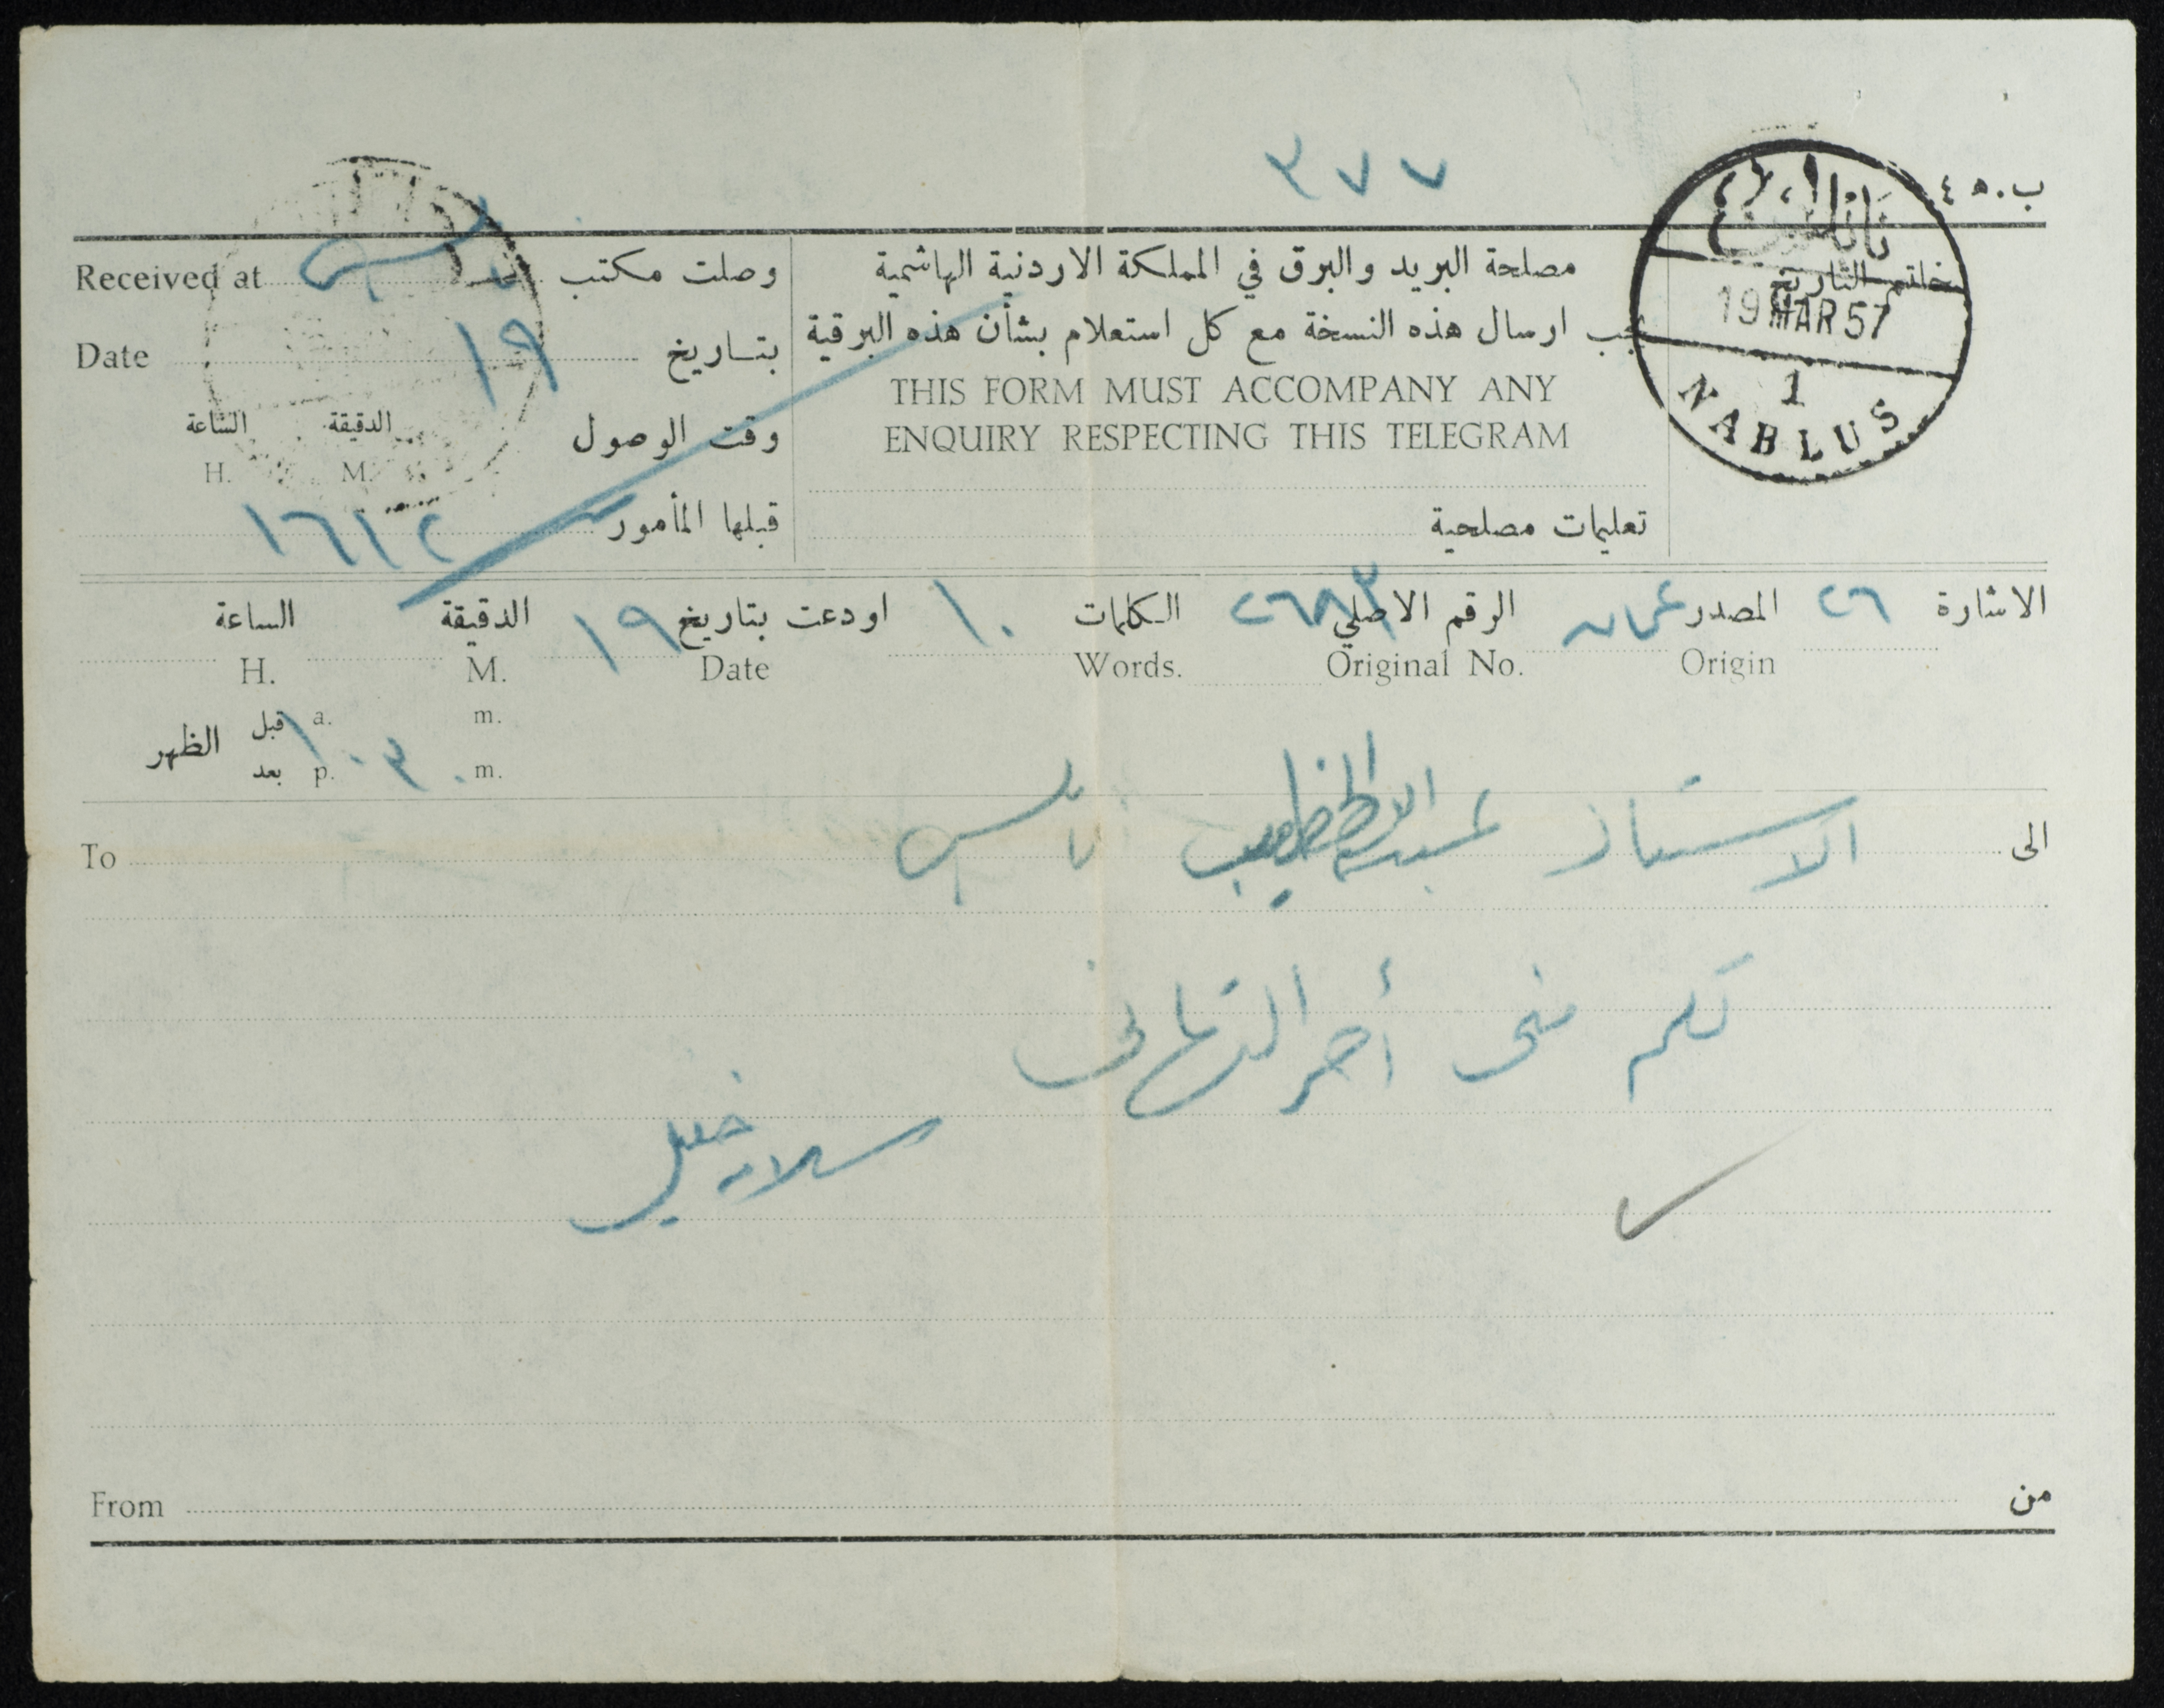 ٣٧٧
ب. ٤٥
نابلس
خاتم التاريخ
19 MAR 57
1
NABLUS
مصلحة البريد والبرق في المملكة الاردنية الهاشمية
يجب ارسال هذه النسخة مع كل استعلام بشأن هذه البرقية
THIS FORM MUST ACCOMPANY ANY
ENQUIRY RESPECTING THIS TELEGRAM
تعليمات مصلحية
Received at نابلس وصلت مكتب
Date ١٩ بتاريخ
وقت الوصول الدقيقة الساعة
H. M.
قبلها المأمور ١٦١٢
الاشارة ٢٦ المصدر عمان الرقم الاصلي الكلمات ١٠ اودعت بتاريخ ١٩ الدقيقة الساعة
Origin Original No. Words. Date M. H.
قبل a. m.
الظهر ١٠٣٠
بعد p. m.
الى الاستاذ الخطيب نابلس To
لكم مني أحر التهاني
سلامه خليل
من From